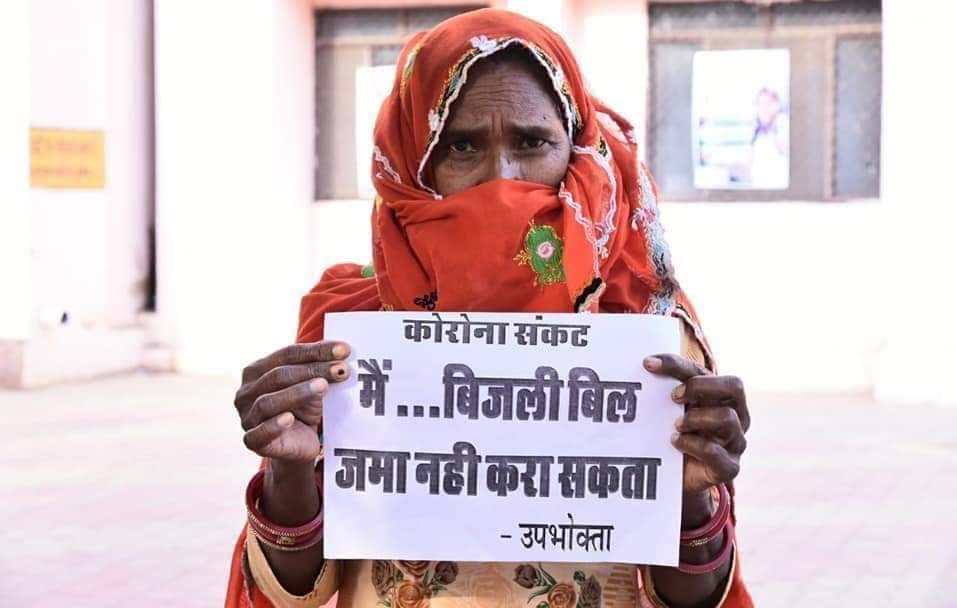 कोरोना संकट
मैं ...बिजली बिल
जमा नही करा सकता
- उपभोक्ता